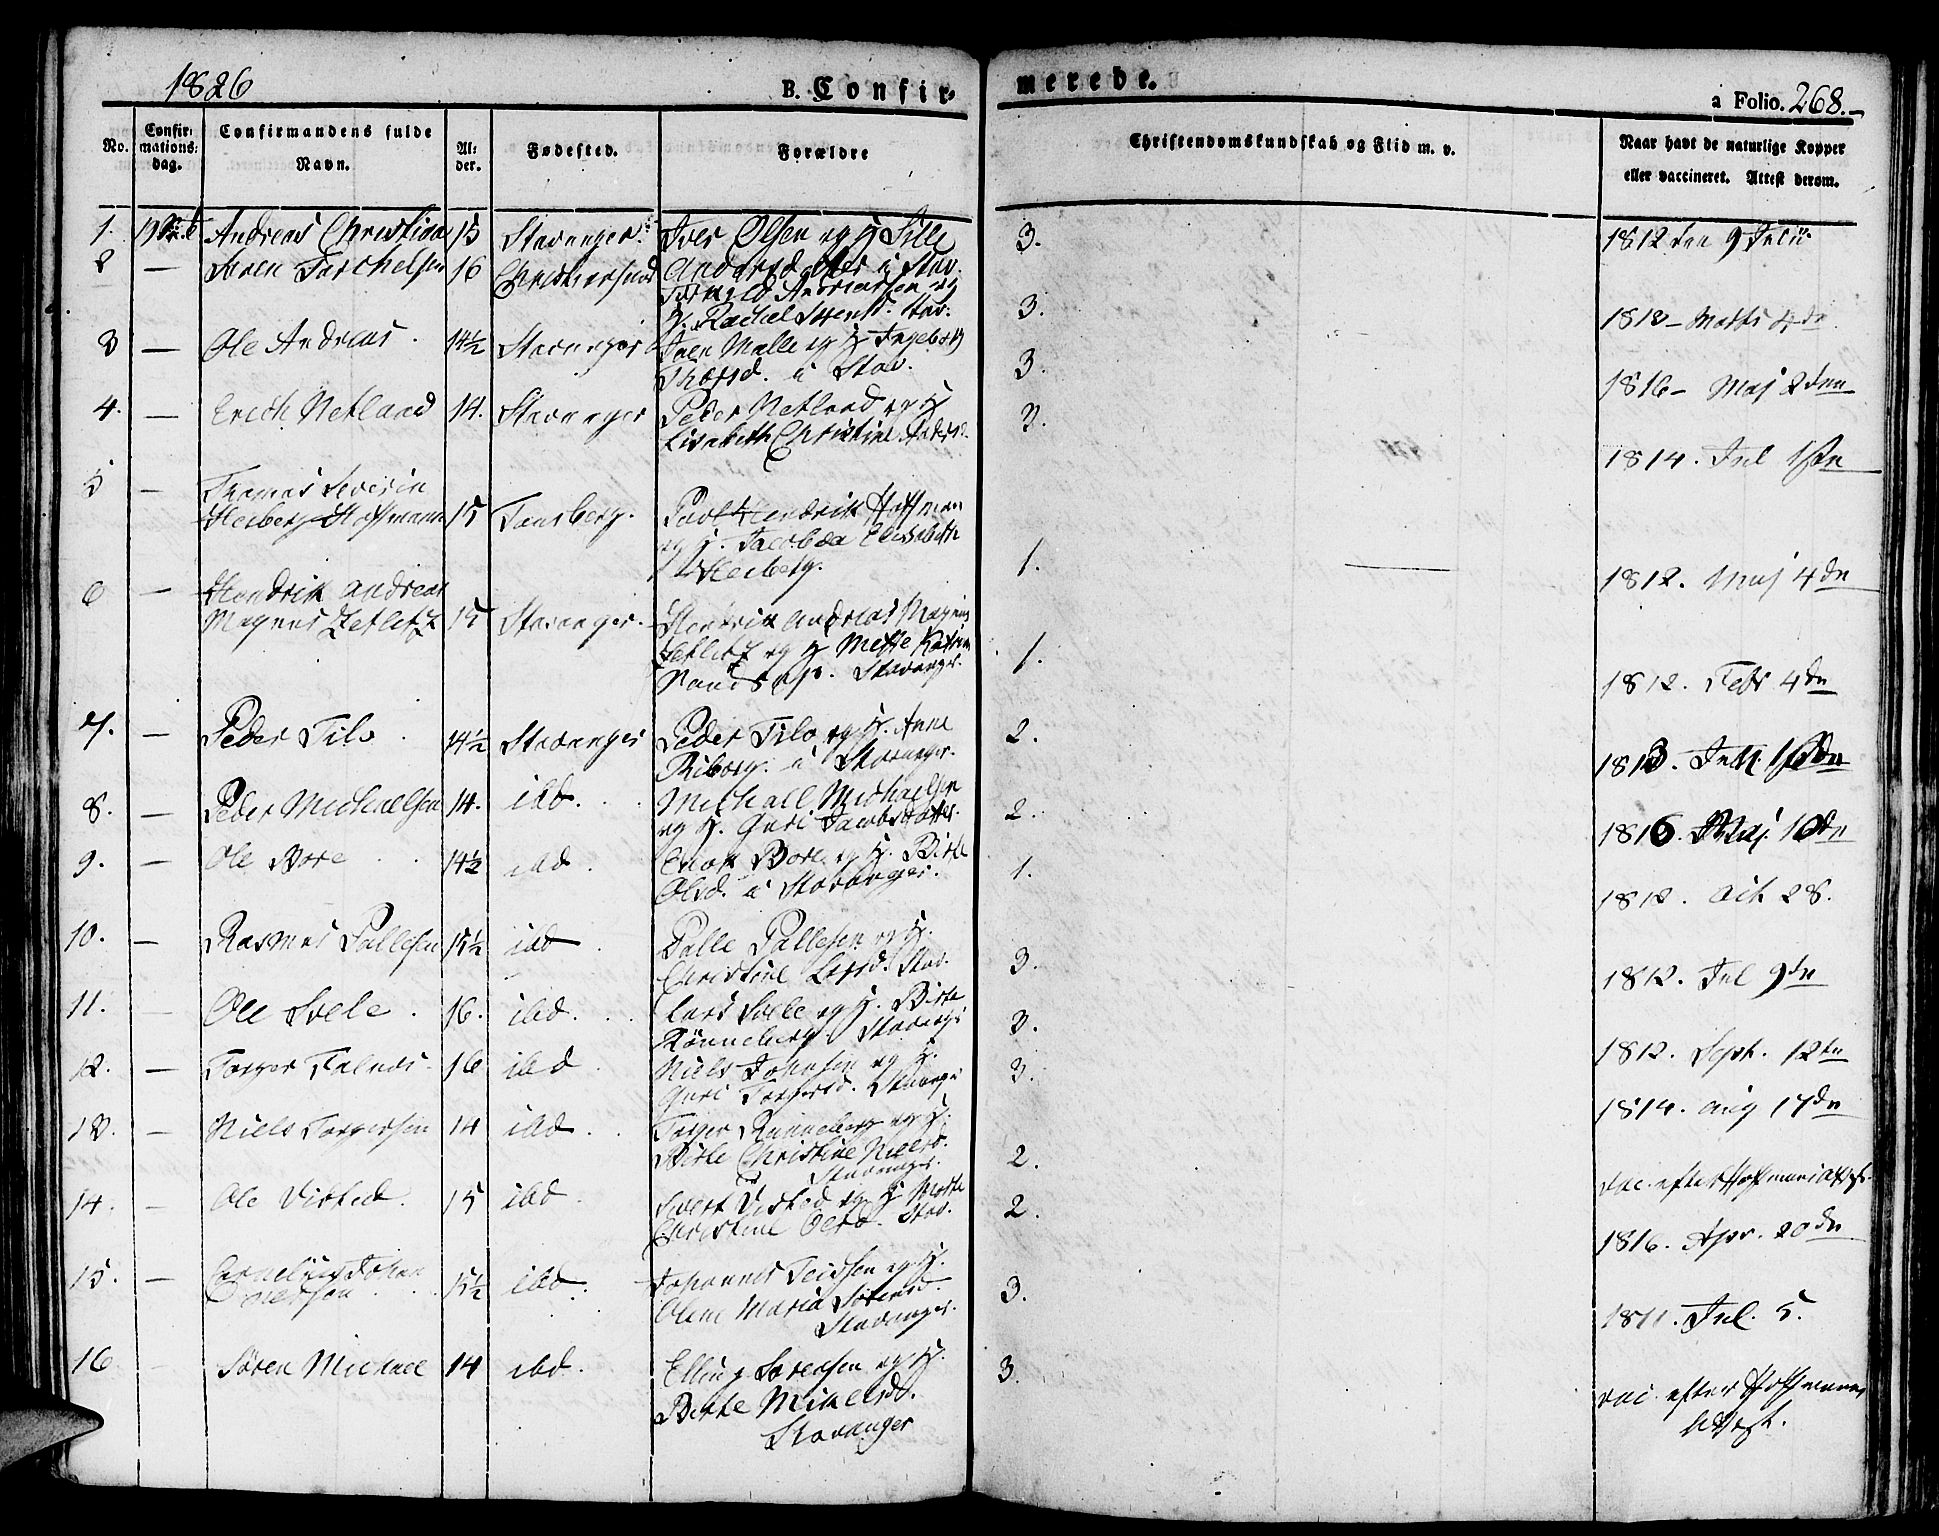 1826 B. Confir-
merede. a Folio. 268.
No. Confir-mations-dag. Confirmandens fulde Navn. Al-der. Fødested. Forældre
Christendomskundskab og Flid m. v. Naar havt de naturlige Kopper eller vaccineret. Attest derom.
1. Andreas Christian 15 Stavanger. Iver Olsen og H Sille 3. 1812 den 9 Julii
2 — 16 Christiansund i Stav.
og H. Rachel Stav. 3. 1812 —
3 — Ole Andreas. 14½ Stavanger Malle og H Ingeborg 3.
i Stav. 1816 — Maj 2den
4. — Erich Netland 14. Stavanger Peder Netland og H 3.
Lisabeth Christine 1814. Jul 1ste
5 — Thomas Severin
Heiberg Hoffmann 15 Tønsberg. Povl Hendrik Hoffman
og H. Jacobæa Elisabeth 1. —
Heiberg. 1812. Maj 4de
6 — Hendrik Andreas
Magnus Zetlitz 15 Stavanger. Hendrik Andreas Magnus
Zetlitz og H Mette Katrin 1.
Stavanger. 1812. Febr 4de
7. — Peder Tilo 14½ Stavanger Peder Tilo og H. Anne 2.
i Stavanger. 1813.
8. — Peder Michaelsen 14. ibd. Michael Michaelsen 2.
og H. Guri Jacobsdatter. 1816. Maj. 10de
9. — Ole Bore 14½ ibd. Enok Bore og H. Birte 1.
Olsd. i Stavanger. 1812. Oct 28.
10. — Rasmus Pallesen 15½ ibd. Palle Pallesen og H. 3.
Christine Larsd. Stav. 1812. Jul 9de
11. — Ole Svele. 16. ibd. Lars Svele og H. Birte 3.
Rönneberg. Stavanger 1812. Sept. 12te
12. — Torger 16 ibd. Niels Johnsen og H. 3.
Guri Torgersd. Stavanger 1814. Aug 17de
13. — Niels Torgersen 14 ibd. Torger Rönneberg og H.
Birte Christine Nielsd. 2.
Stavanger. vac. efter Hoffmans Attest.
14. — Ole Visted. 15 ibd. Sivert Visted og H Mette 2.
Christine Olsd. Stav. 1816. Apr. 20de
15. — Cornelius Johan 15½ ibd. Johannes og H.
Olene Maria Sörensd. 3.
Stavanger. 1811. Jul. 5.
16 — Sören Michael 14 ibd. Elling Sørensen og H. 3.
Birte Mikelsd. vac. efter Hoffmanns
Stavanger Attest.